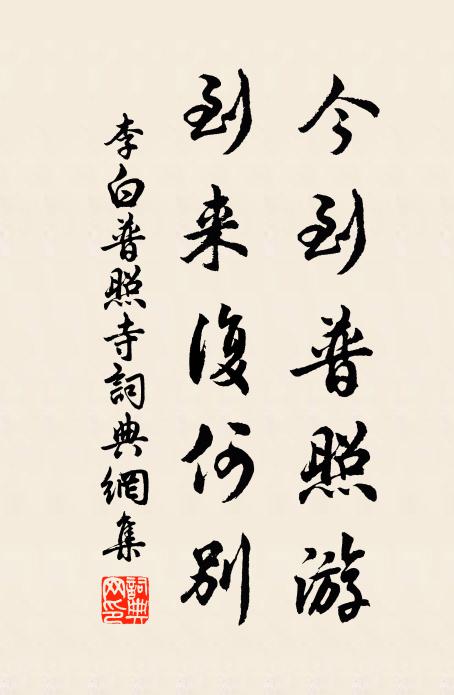 今到普照游
到来復何别
李白普照寺詞典網集
詞典网印